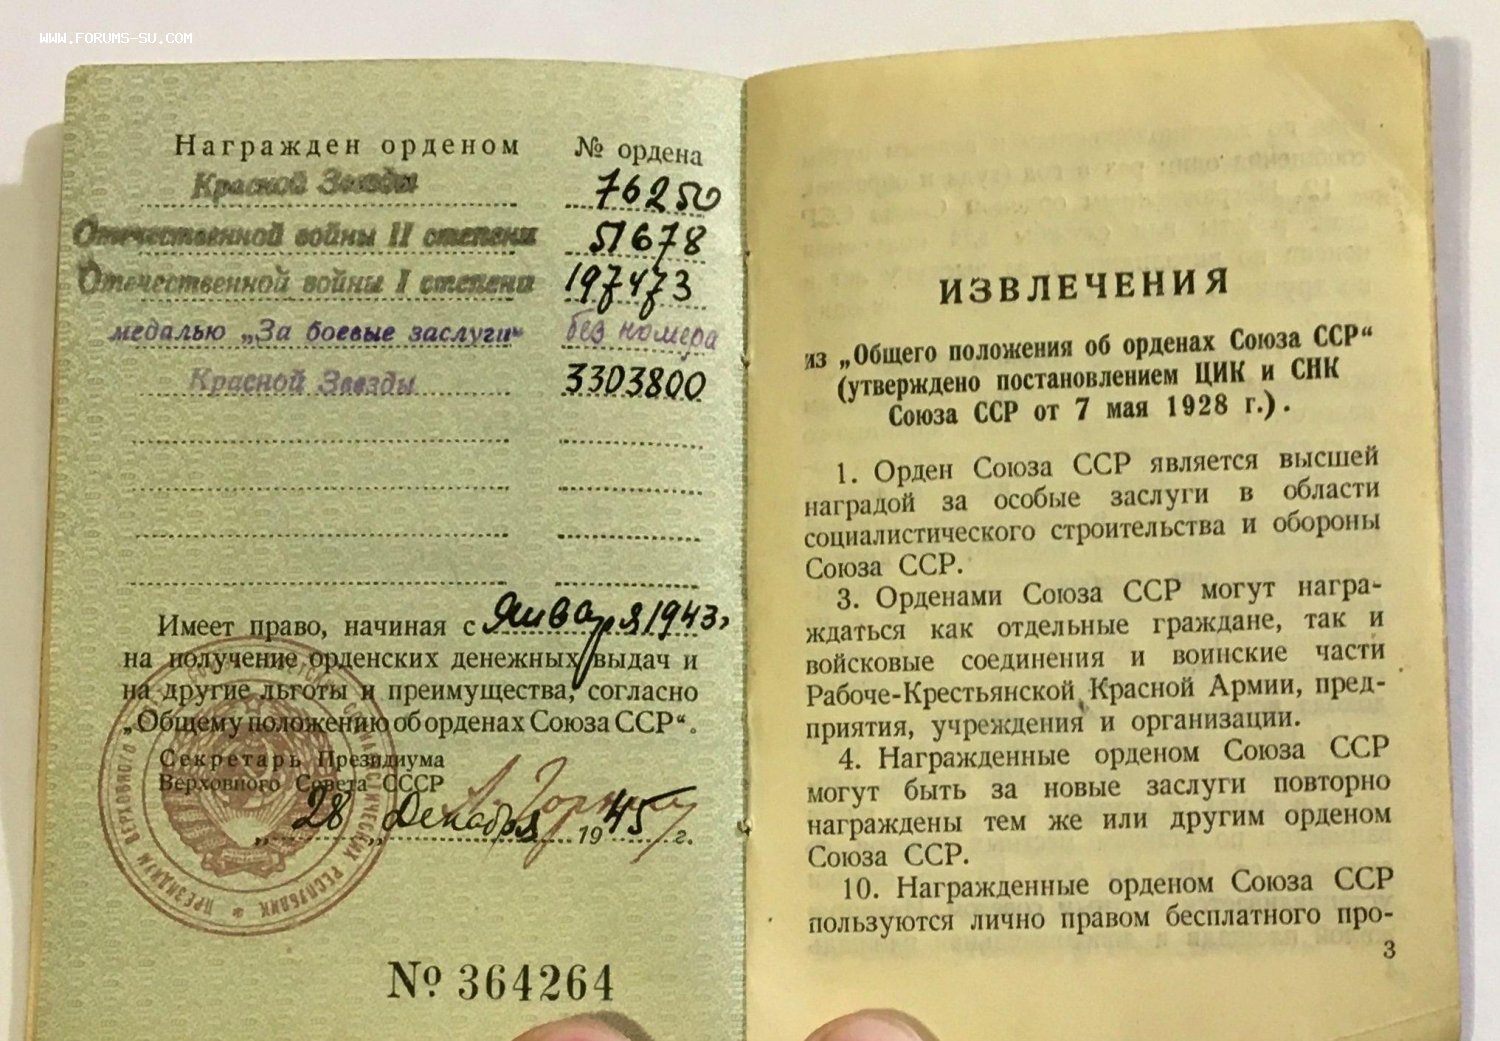 WWW.FORUMS-SU.COM
Награжден орденом № ордена
Красной Звезды 76250
Отечественной войны II степени 51678
Отечественной войны I степени 197473
медалью „За боевые заслуги“ без номера
Красной Звезды 3303800
Имеет право, начиная с Января 1943г
на получение орденских денежных выдач и
на другие льготы и преимущества, согласно
„Общему положению об орденах Союза ССР“.
Секретарь Президиума
Верховного Совета СССР
„28„ Декабря 1945 г.
ПРЕЗИДИУМ ВЕРХОВНОГО СОВЕТА СОЮЗА СОВЕТСКИХ СОЦИАЛИСТИЧЕСКИХ РЕСПУБЛИК *
№ 364264
ИЗВЛЕЧЕНИЯ
из „Общего положения об орденах Союза ССР“
(утверждено постановлением ЦИК и СНК
Союза ССР от 7 мая 1928 г.).
1. Орден Союза ССР является высшей
наградой за особые заслуги в области
социалистического строительства и обороны
Союза ССР.
3. Орденами Союза ССР могут награ-
ждаться как отдельные граждане, так и
войсковые соединения и воинские части
Рабоче-Крестьянской Красной Армии, пред-
приятия, учреждения и организации.
4. Награжденные орденом Союза ССР
могут быть за новые заслуги повторно
награждены тем же или другим орденом
Союза ССР.
10. Награжденные орденом Союза ССР
пользуются лично правом бесплатного про-
3